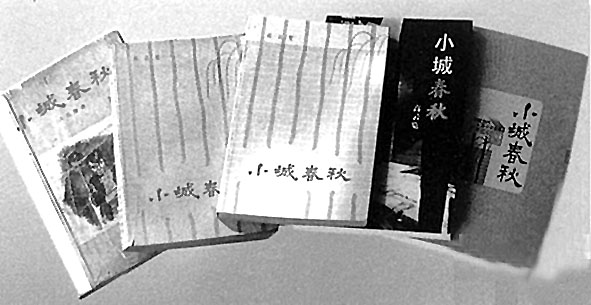 小城春秋
小城春秋
小城春秋
小城春秋
小城春秋